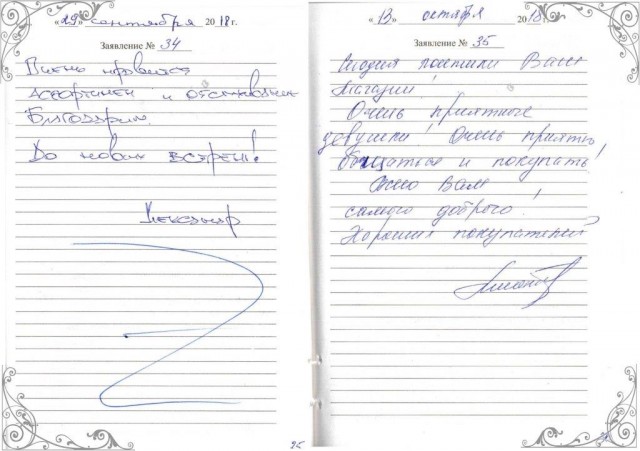 «29» сентября 2018г.
Заявление № 34
Очень нравится
Ассортимен и отношение
Благодарим.
До новых встреч!
Александр
25
«13» октября 2018г.
Заявление № 35
Сегодня посетили Ваш
Магазин!
Очень приятные
девушки! Очень приятно
общаться и покупать!
Желаю Вам
самого доброго!
Хороших покупателей